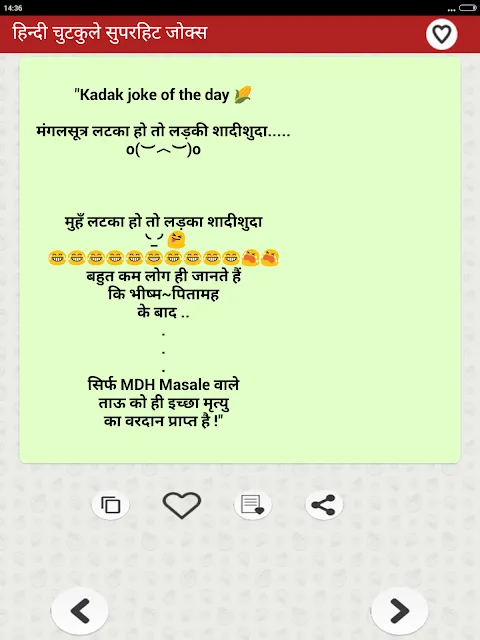 14:36
हिन्दी चुटकुले सुपरहिट जोक्स
"Kadak joke of the day 🌽
मंगलसूत्र लटका हो तो लड़की शादीशुदा.....
o(︶︿︶)o
मुहँ लटका हो तो लड़का शादीशुदा
╰_╯ 😝
😂😂😂😂😂😂😂😂😂😂😭😭
बहुत कम लोग ही जानते हैं
कि भीष्म~पितामह
के बाद ..
.
.
.
सिर्फ MDH Masale वाले
ताऊ को ही इच्छा मृत्यु
का वरदान प्राप्त है !"